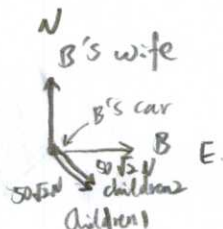 N
B's wife
B's car
B E.
50√2 N
50√2 N children2
Children1